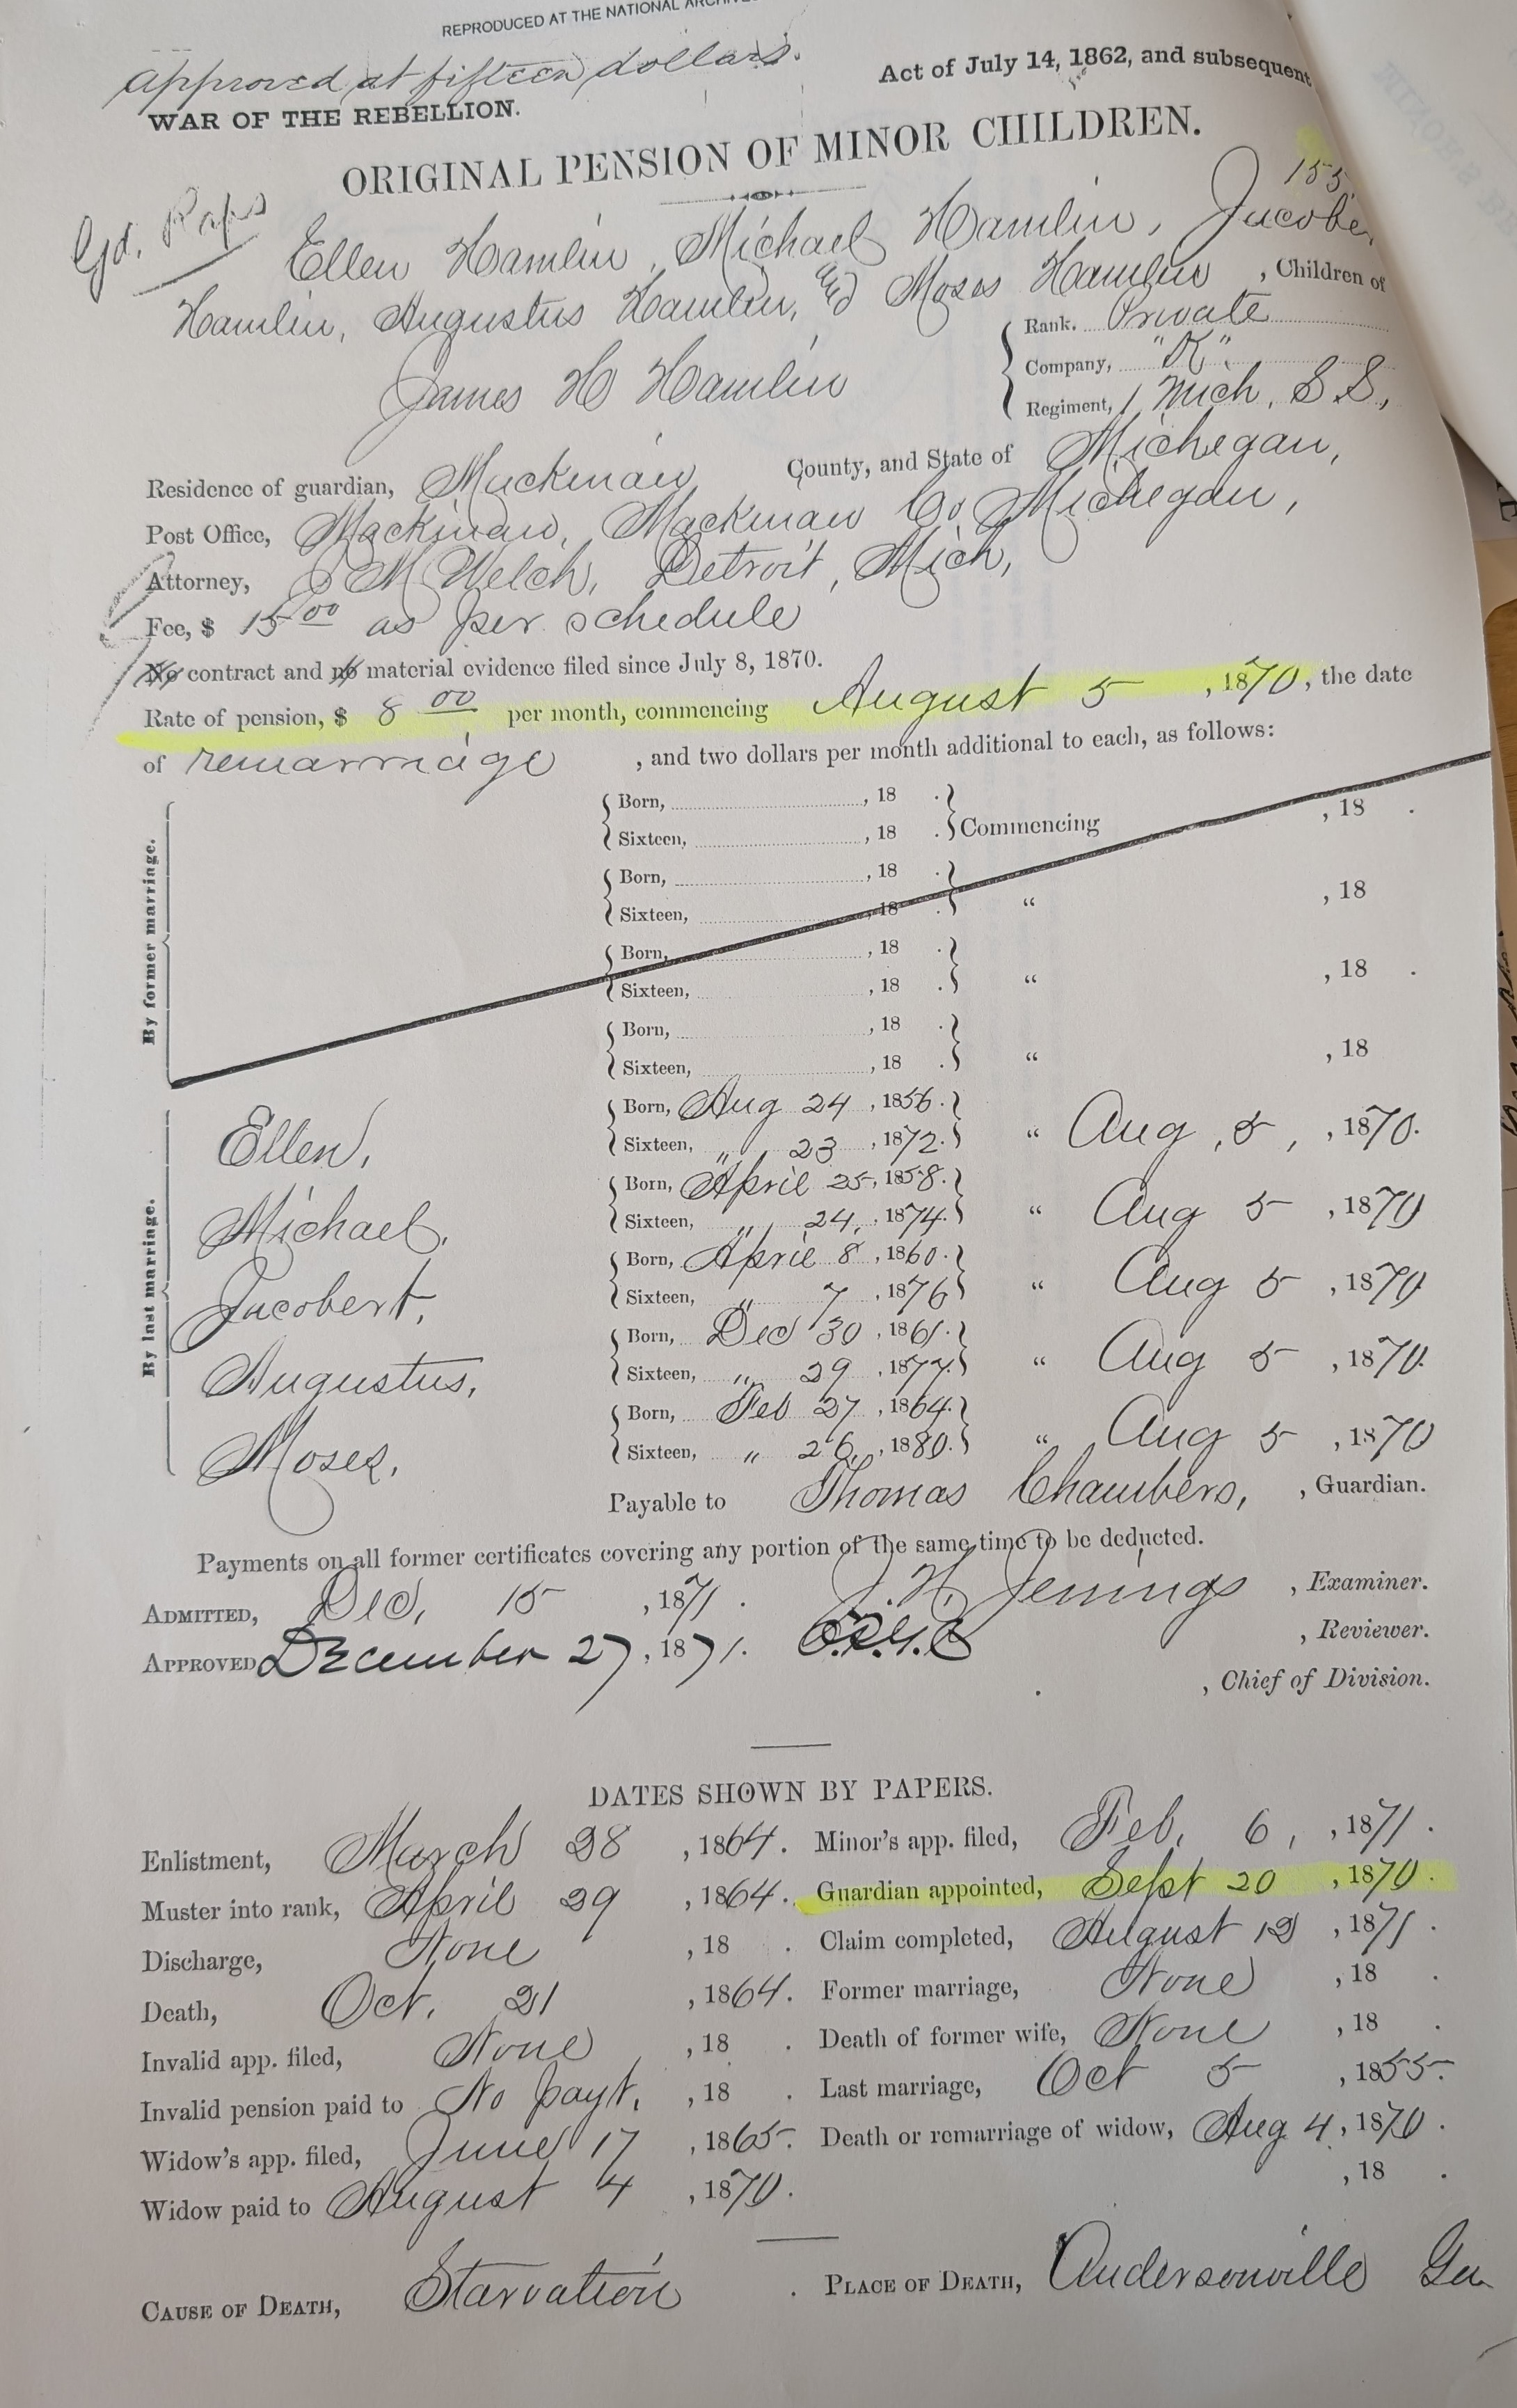 REPRODUCED AT THE NATIONAL ARCHIVES
Approved at fifteen dollars.
Act of July 14, 1862, and subsequent
WAR OF THE REBELLION.
ORIGINAL PENSION OF MINOR CHILDREN.
155
Gd. Paps
Ellen Hamlin, Michael Hamlin, Jacobe
Hamlin, Augustus Hamlin, & Moses Hamlin, Children of
James H Hamlin
Rank. Private
Company, "K".
Regiment, 1 Mich, S S,
Residence of guardian, Mackinaw County, and State of Michegan,
Post Office, Mackinaw, Mackinaw Co Michegan,
Attorney, J M Welch, Detroit, Mich,
Fee, $ 15 00 as per schedule
No contract and no material evidence filed since July 8, 1870.
Rate of pension, $ 8 00 per month, commencing August 5, 1870, the date
of remarriage, and two dollars per month additional to each, as follows:
By former marriage.
Born, , 18 .
Sixteen, , 18 . Commencing , 18 .
Born, , 18 .
Sixteen, , 18 . " , 18
Born, , 18 .
Sixteen, , 18 . " , 18 .
Born, , 18 .
Sixteen, , 18 . " , 18
By last marriage.
Ellen, Born, Aug 24, 1856.
Sixteen, " 23, 1872. " Aug, 5, , 1870.
Michael, Born, April 25, 1858.
Sixteen, " 24, 1874. " Aug 5, 1870
Jacobert, Born, April 8, 1860.
Sixteen, " 7, 1876 " Aug 5, 1870
Augustus, Born, Dec 30, 1861.
Sixteen, " 29, 1877. " Aug 5, 1870.
Moses, Born, Feb 27, 1864.
Sixteen, " 26, 1880. " Aug 5, 1870
Payable to Thomas Chambers, , Guardian.
Payments on all former certificates covering any portion of the same time to be deducted.
ADMITTED, Dec, 15, 1871. J. H. Jennings, Examiner.
APPROVED December 27, 1871. , Reviewer.
, Chief of Division.
DATES SHOWN BY PAPERS.
Enlistment, March 28, 1864. Minor's app. filed, Feb, 6, , 1871.
Muster into rank, April 29, 1864. Guardian appointed, Sept 20, 1870.
Discharge, None, 18 . Claim completed, August 12, 1871.
Death, Oct. 21, 1864. Former marriage, None, 18 .
Invalid app. filed, None, 18 . Death of former wife, None, 18 .
Invalid pension paid to No payt., 18 . Last marriage, Oct 5, 1855.
Widow's app. filed, June 17, 1865. Death or remarriage of widow, Aug 4, 1870.
Widow paid to August 4, 1870. , 18 .
CAUSE OF DEATH, Starvation . PLACE OF DEATH, Andersonville Ga